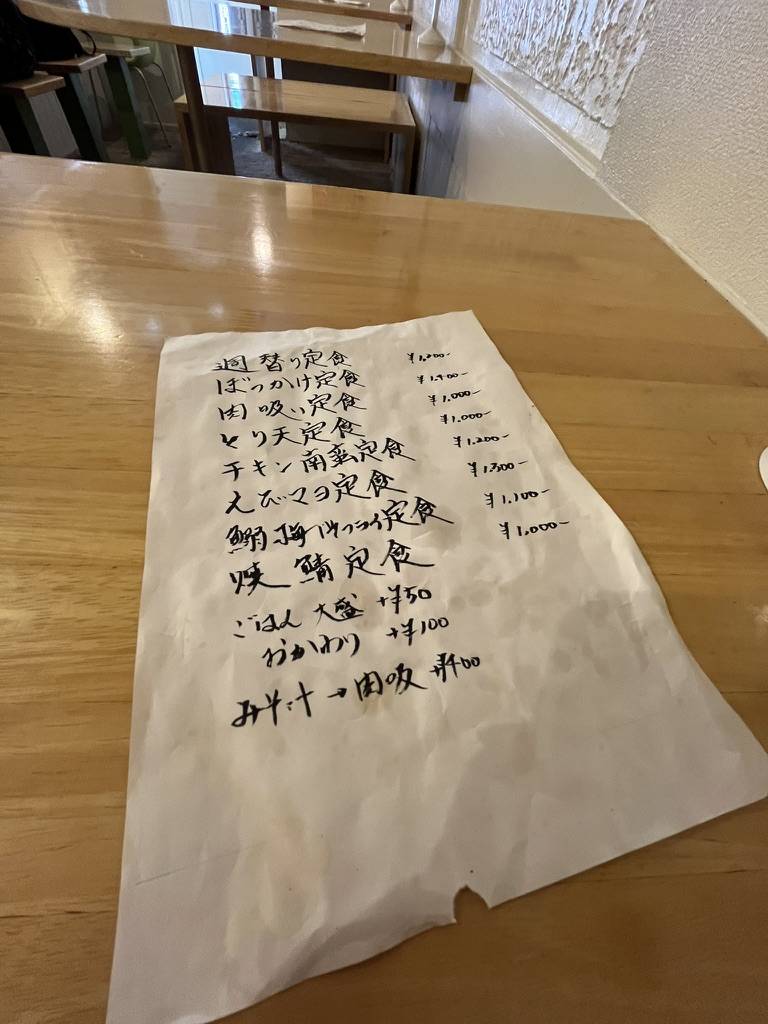 週替り定食 ¥1,200-
ぼっかけ定食 ¥1,400-
肉吸い定食 ¥1,000-
とり天定食 ¥1,000-
チキン南蛮定食 ¥1,200-
えびマヨ定食 ¥1,300-
鰯梅しそフライ定食 ¥1,100-
焼鯖定食 ¥1,000-
ごはん 大盛 +¥50
おかわり +¥100
みそ汁→肉吸 +¥400